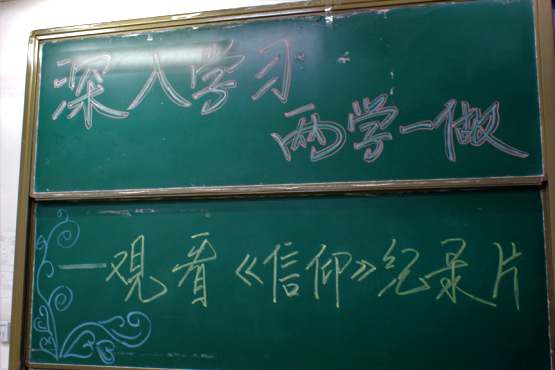 深入学习
两学一做
—观看《信仰》纪录片